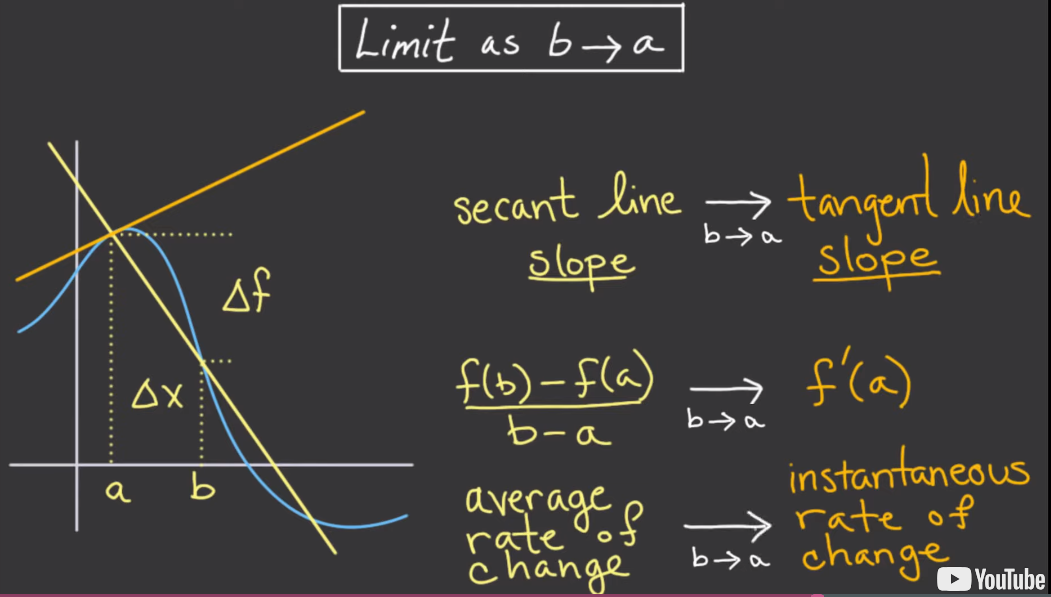 Limit as b → a
Δf
Δx
a b
secant line → tangent line
b → a
slope slope
f(b) – f(a) → f'(a)
b – a b → a
average rate of change → instantaneous rate of change
b → a
YouTube